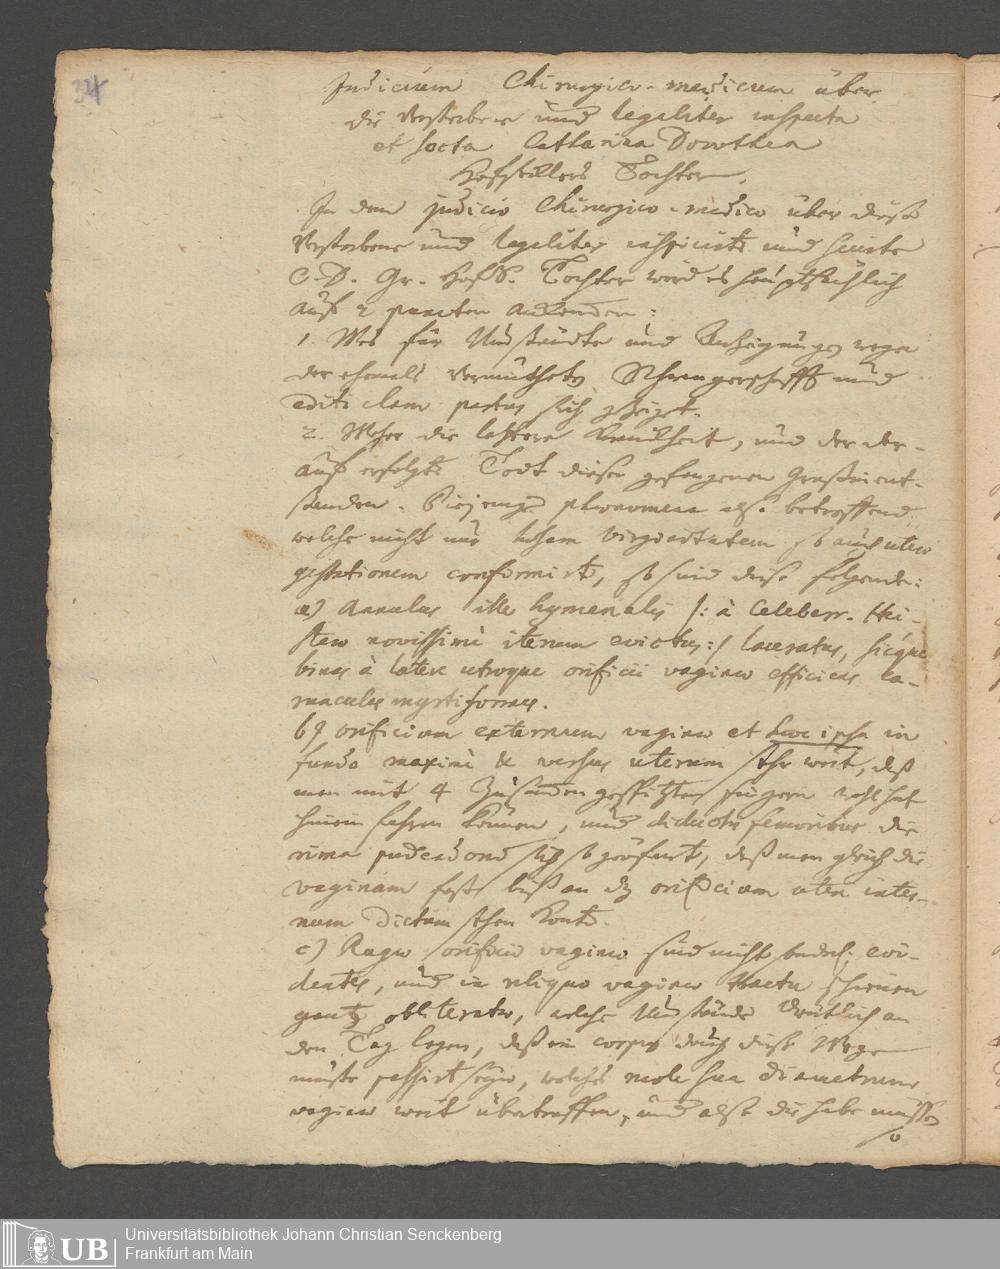 34
Judicium Chirurgico-medicum über
die Verstorbene und legaliter inspecta
et secta Catharina Dorothea
Tochter,
In dem judicio Chirurgico-medico über diese
Verstorbene und legaliter inspicirte und secirte
C. D. Gr. Tochter wird es hauptsächlich
auf 2 puncten ankommen:
1. Was für Umstände und Anzeigungen wegen
der ehemals vermutheten Schwangerschafft und
editi clam partus sich gezeiget.
2. Woher die letztere Kranckheit, und der dar-
auf erfolgte Todt dieser gefangenen
standen. Diejenige phoenomena also betreffend
welche nicht nur laesam virginitatem so auch uteri
gestationem confirmirt, so sind diese folgende:
a) Annulus ille hymenalis /: à Celeberr. Hei-
stero novissimè iterum evictus :/ laceratus, sicque
binas à latere utroque orificii vaginae efficiens ca-
runculas myrtiformes.
b) orificium externum vaginae et haec ipsa in
fundo maximè & versus uterum sehr weit, daß
man mit 4 zusammen gespitzten fingern wohl hat
hinein fahren können, und diductis femoribus die
rima pudendorum sich so geöfnet, daß man gleich die
vaginam fast biß an dz orificium uteri inter-
num dictum sehen konte.
c) Rugae orificio vaginae sind nicht evi-
dentes, und in reliquo vaginae tractu schienen
gantz obliteratae, welche Umstände deutlich an
den Tag legen, daß ein corpus durch diese Wege
müste passirt seyn, welches mole sua diametrum
vaginae weit übertroffen, und also die habe müssen
Universitätsbibliothek Johann Christian Senckenberg
Frankfurt am Main
UB